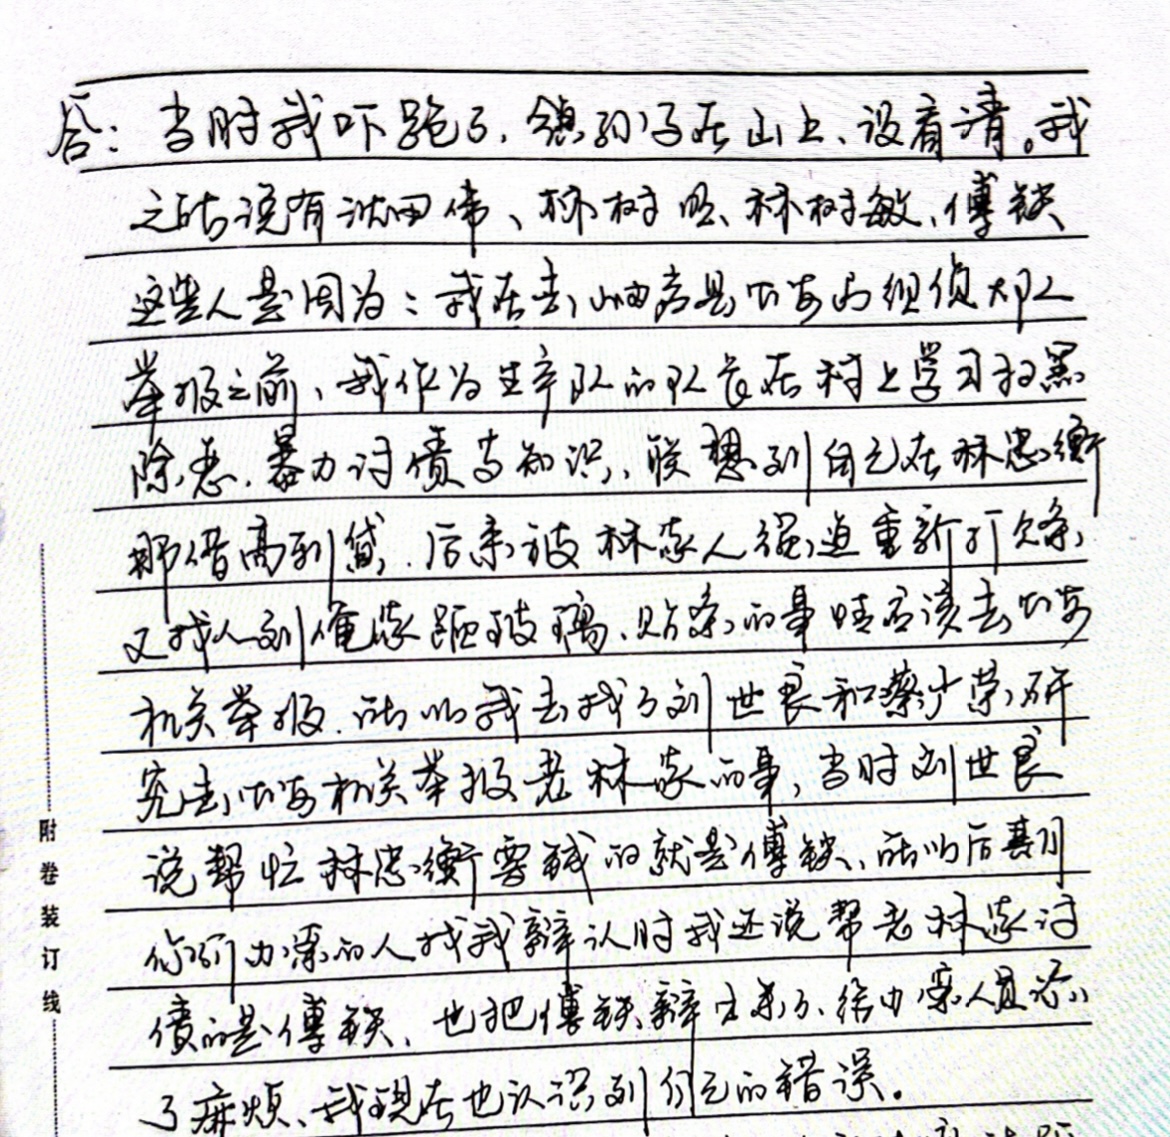 答：当时我吓跑了，领孙子在山上，没看清。我
之所以说有沈田伟、林树明、林树敏、傅铁
这些人是因为：我在去岫岩县公安局经侦大队
举报之前，我作为生产队的队长在村上学习扫黑
除恶、暴力讨债等知识，联想到自己在林忠衡
那借高利贷，后来被林家人强迫重新打欠条，
又找人到俺家砸玻璃、贴条的事时应该去公安
机关举报，所以我去找了刘世良和蔡少荣研
究去公安机关举报老林家的事，当时刘世良
说帮忙林忠衡要钱的就是傅铁，所以后期
你们办案的人找我辩认时我还说帮老林家讨
债的是傅铁，也把傅铁辩出来了，给办案人员添
了麻烦，我现在也认识到自己的错误。
附卷装订线